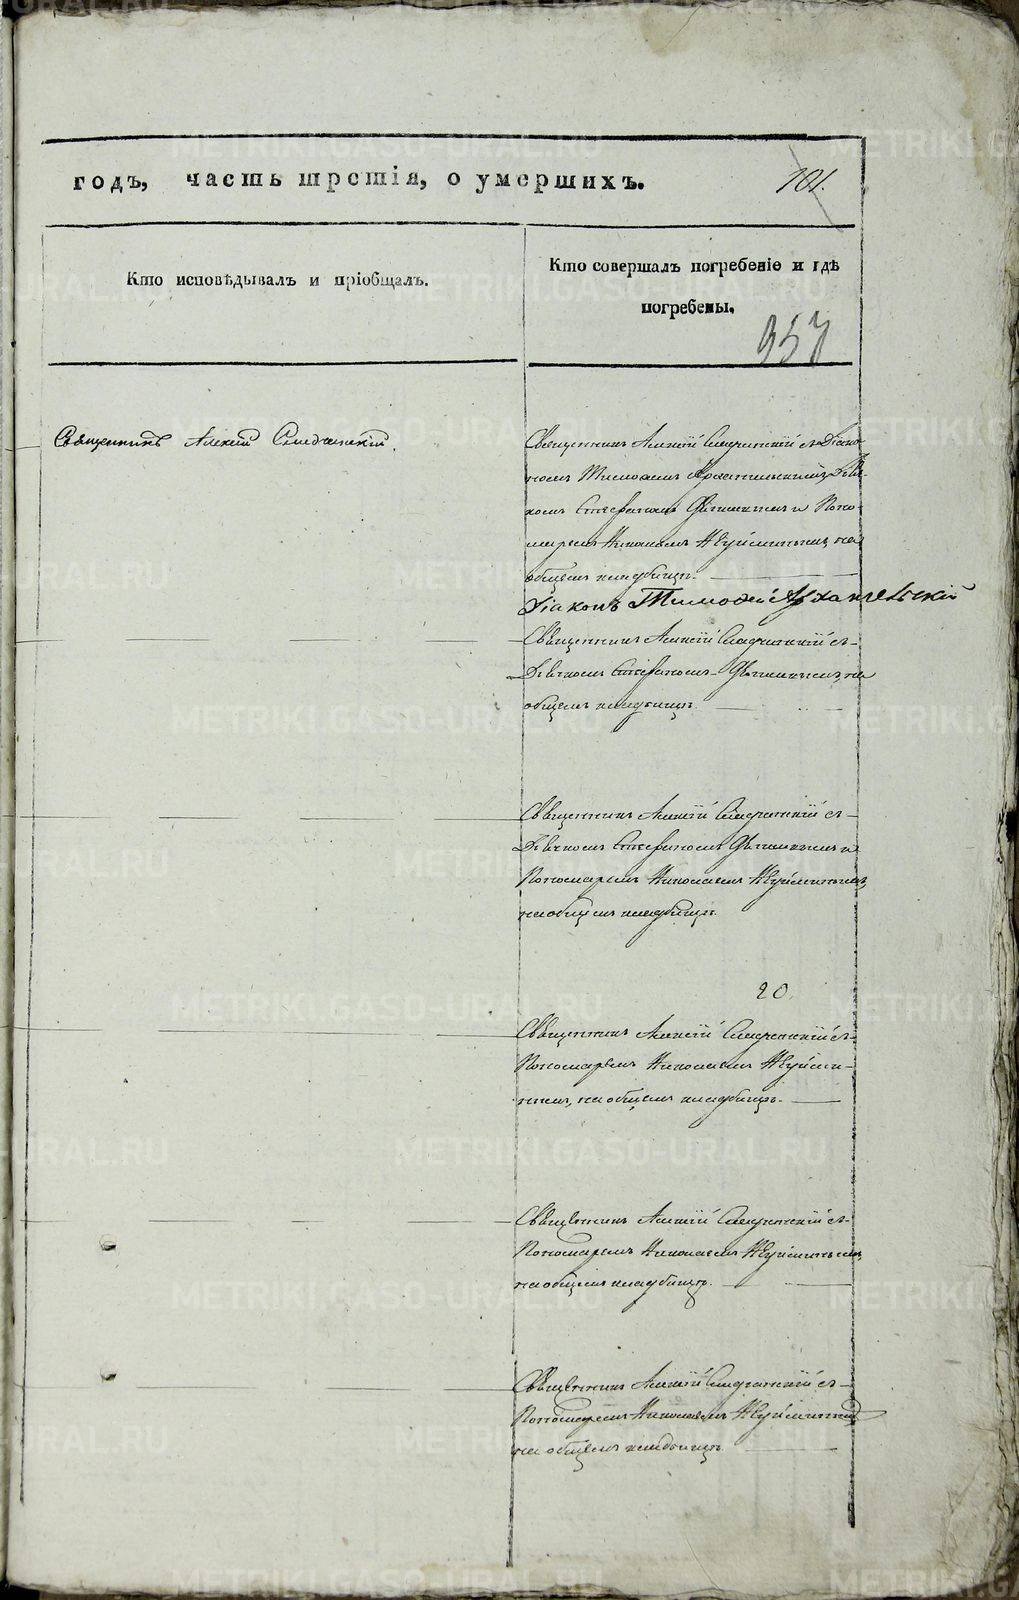 годъ, часть третія, о умершихъ.
101.
Кто исповѣдывалъ и пріобщалъ.
Кто совершалъ погребеніе и гдѣ
погребены.
957
Священникъ Алексій
Священникъ Алексій съ Діако-
номъ Тимоѳеемъ Архангельскимъ, Дья-
комъ Стефаномъ и Поно-
маремъ Николаемъ на
общемъ кладбищѣ.
Діаконъ Тимоѳей Архангельскій
Священникъ Алексій съ
Дьячкомъ Стефаномъ на
общемъ кладбищѣ.
Священникъ Алексій съ
Дьячкомъ Стефаномъ и
Пономаремъ Николаемъ
на общемъ кладбищѣ.
20.
Священникъ Алексій съ
Пономаремъ Николаемъ
на общемъ кладбищѣ.
Священникъ Алексій съ
Пономаремъ Николаемъ
на общемъ кладбищѣ.
Священникъ Алексій съ
Пономаремъ Николаемъ
на общемъ кладбищѣ.
METRIKI.GASO-URAL.RU